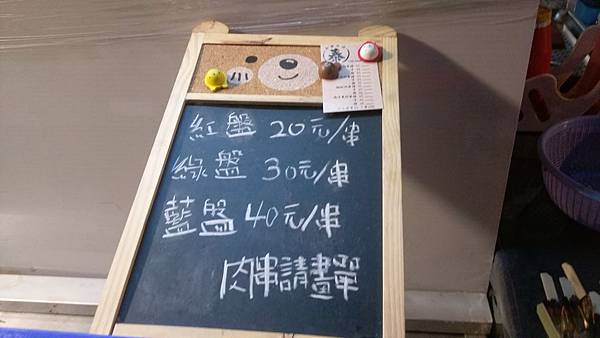 泰
紅盤 20元/串
綠盤 30元/串
藍盤 40元/串
肉串請畫單